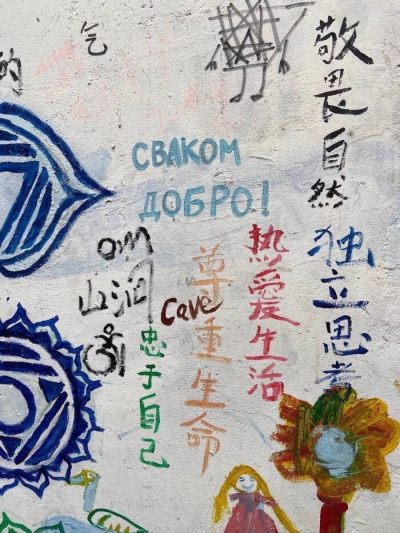 气
的
敬畏自然
СВАКОМ
ДОБРО!
独立思考
热爱生活
尊重生命
om
山洞
Cave
忠于自己